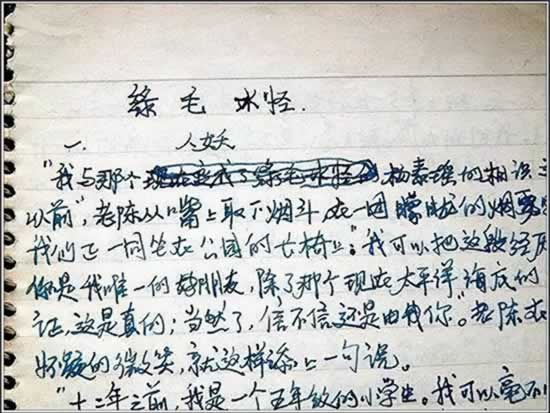 绿毛水怪.
一. 人妖
“我与那个现在变成了绿毛水怪的杨素瑶的相识
以前”,老陈从嘴上取下烟斗,在一团朦胧的烟雾
我们正一同坐在公园的长椅上:“我可以把这段经历
你是我唯一的好朋友,除了那个现在太平洋海底的
证,这是真的;当然了,信不信还是由我你。”老陈在
好疑的微笑,就这样添上一句说。
“十二年之前,我是一个五年级的小学生。我可以毫不